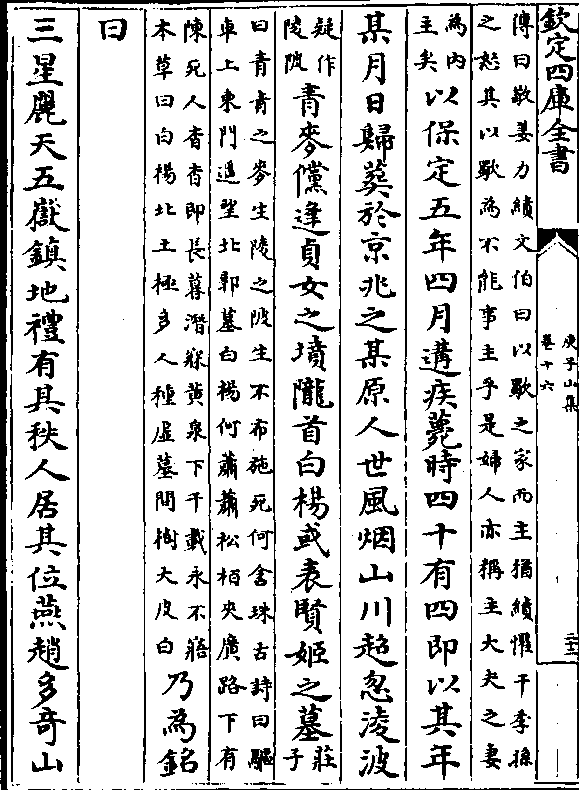 欽定四庫全書
庾子山集
卷十六
三十二
傳曰敬姜方績文伯曰以歜之家而主猶績懼干季孫
之怒其以歜為不能事主乎是婦人亦稱主大夫之妻
為内
主矣
以保定五年四月遘疾薨時四十有四即以其年
某月日歸葬於京兆之某原人世風烟山川超忽淩波
疑作
陵陂
青麥儻逢貞女之墳隴首白楊或表賢姬之墓
莊子
曰青青之麥生陵之陂生不布施死何含珠古詩曰驅
車上東門遥望北郭墓白楊何蕭蕭松栢夾廣路下有
陳死人杳杳即長暮潛寐黄泉下千載永不寤
本草曰白楊北土極多人種墟墓間樹大皮白
乃為銘
曰
三星麗天五嶽鎮地禮有其秩人居其位燕趙多奇山